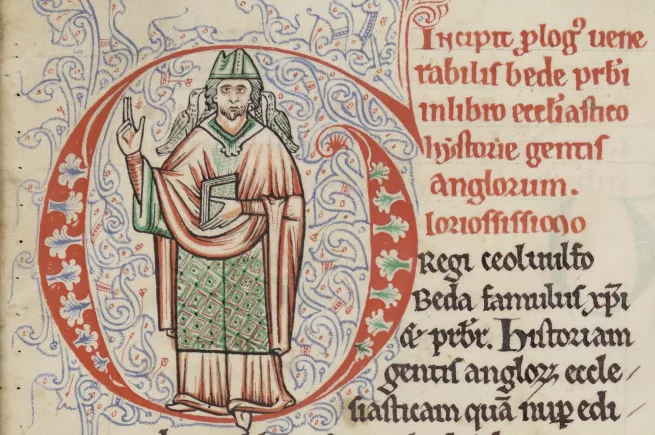 Incipit plogꝰ uene
rabilis bede prb̄i
in libro eccl̄iastico
hystorie gentis
anglorum.
loriosissimo
Regi ceoluulfo
Beda famulus xp̄i
& prb̄r. Historiam
gentis angloꝝ eccle
siasticam quā nuꝑ edi